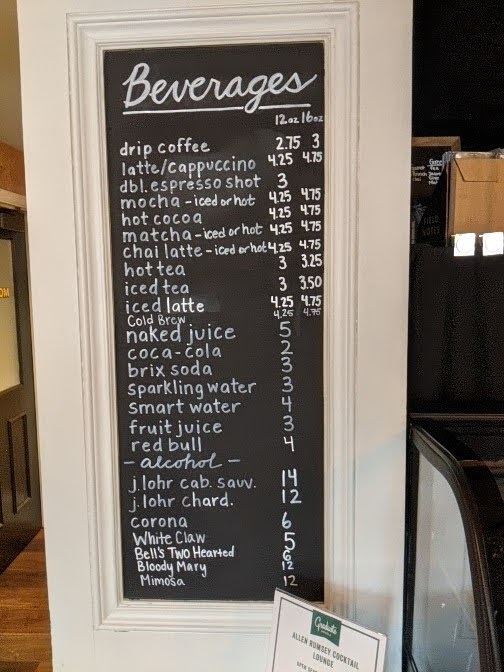 Beverages
12oz 16oz
drip coffee 2.75 3
latte/cappuccino 4.25 4.75
dbl. espresso shot 3
mocha - iced or hot 4.25 4.75
hot cocoa 4.25 4.75
matcha - iced or hot 4.25 4.75
chai latte - iced or hot 4.25 4.75
hot tea 3 3.25
iced tea 3 3.50
iced latte 4.25 4.75
Cold Brew 4.25 4.75
naked juice 5
coca-cola 2
brix soda 3
sparkling water 3
smart water 4
fruit juice 3
red bull 4
- alcohol -
j.lohr cab. sauv. 14
j.lohr chard. 12
corona 6
White Claw 5
Bell's Two Hearted 6
Bloody Mary 12
Mimosa 12
Graduate
ALLEN RUMSEY COCKTAIL
LOUNGE
FIELD
NOTES